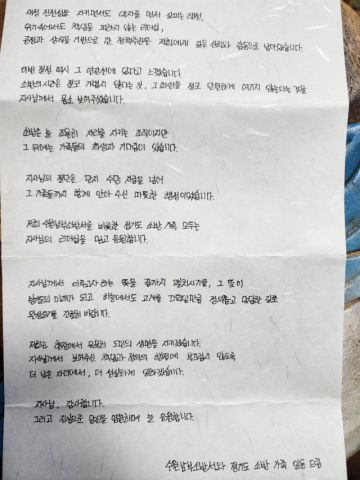 재정 건전성을 지키면서도 약자를 먼저 살피는 행정,
위기속에서도 책임을 피하지 않는 리더십,
공정과 상식을 기반으로 한 정책추진은 저희에게 깊은 신뢰와 감동으로 남아있습니다.
이번 결정 역시 그 연장선에 있다고 느꼈습니다.
소방의 시간은 결코 가볍지 않다는 것, 그 희생을 결코 당연하게 여기지 않는다는 것을
지사님께서 몸소 보여주셨습니다.
소방은 늘 조용히 자리를 지키는 조직이지만
그 뒤에는 가족들의 희생과 기다림이 있습니다.
지사님의 결단은 단지 수당 지급을 넘어
그 가족들까지 함께 안아 주신 따뜻한 행정이었습니다.
저희 수원남부소방서를 비롯한 경기도 소방 가족 모두는
지사님의 리더십을 믿고 응원합니다.
지사님께서 이루고자 하는 뜻을 끝까지 펼치시기를, 그 뜻이
경기도의 미래가 되고 훗날에도 고개를 끄덕일만큼 정의롭고 담담한 길로
완성되기를 간절히 바랍니다.
저희는 현장에서 묵묵히 도민의 생명을 지키겠습니다.
지사님께서 보여주신 책임과 정의의 행정에 부끄럽지 않도록
더 낮은 자리에서, 더 성실하게 일하겠습니다.
지사님, 감사합니다.
그리고 진심으로 당신을 응원하며 늘 응원합니다.
수원남부소방서와 경기도 소방 가족 일동 드림